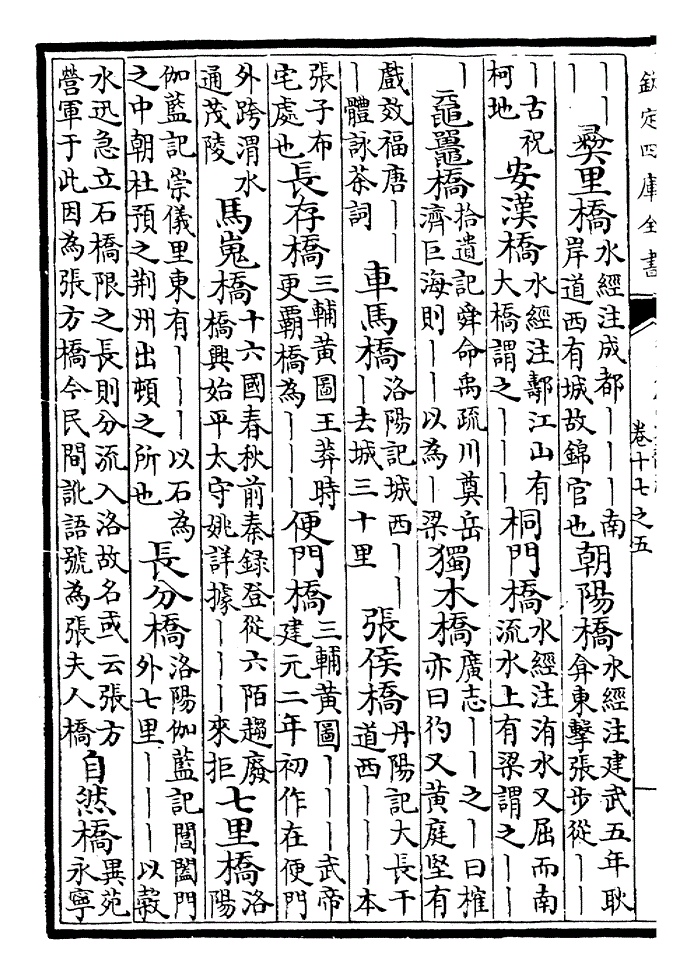 欽定四庫全書
卷十七之五
｜｜
｜｜
彛里橋
水經注成都｜｜｜南
岸道西有城故錦官也
朝陽橋
水經注建武五年耿
弇東擊張步從｜｜
｜古祝
柯地
安漢橋
水經注江山有
大橋謂之｜｜｜
桐門橋
水經注洧水又屈而南
流水上有梁謂之｜｜
｜
黿鼉橋
拾遺記舜命禹疏川奠岳
濟巨海則｜｜以為｜梁
獨木橋
廣志｜｜之｜曰榷
亦曰彴又黃庭堅有
戲效福唐｜｜
｜體詠茶詞
車馬橋
洛陽記城西｜｜
｜去城三十里
張侯橋
丹陽記大長干
道西｜｜｜本
張子布
宅處也
長存橋
三輔黃圖王莽時
更霸橋為｜｜｜
便門橋
三輔黃圖｜｜｜武帝
建元二年初作在便門
外跨渭水
通茂陵
馬嵬橋
十六國春秋前秦錄登從六陌趨廢
橋興始平太守姚詳據｜｜｜來拒
七里橋
洛
陽
伽藍記崇儀里東有｜｜｜以石為
之中朝杜預之荊州出頓之所也
長分橋
洛陽伽藍記閶闔門
外七里｜｜｜以榖
水迅急立石橋限之長則分流入洛故名或云張方
營軍于此因為張方橋今民間訛語號為張夫人橋
自然橋
異苑
永寧